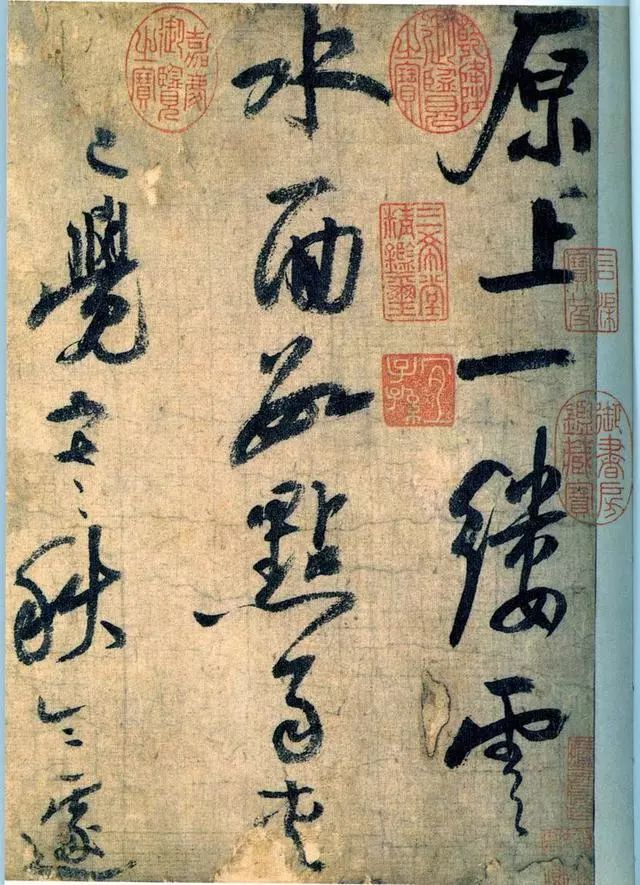 原上一縷雲
水面數點雨夾
已覺寒秋令遽
石渠寶笈
御書房鑑藏寶
乾隆御覽之寶
三希堂精鑑璽
宜子孫
嘉慶御覽之寶